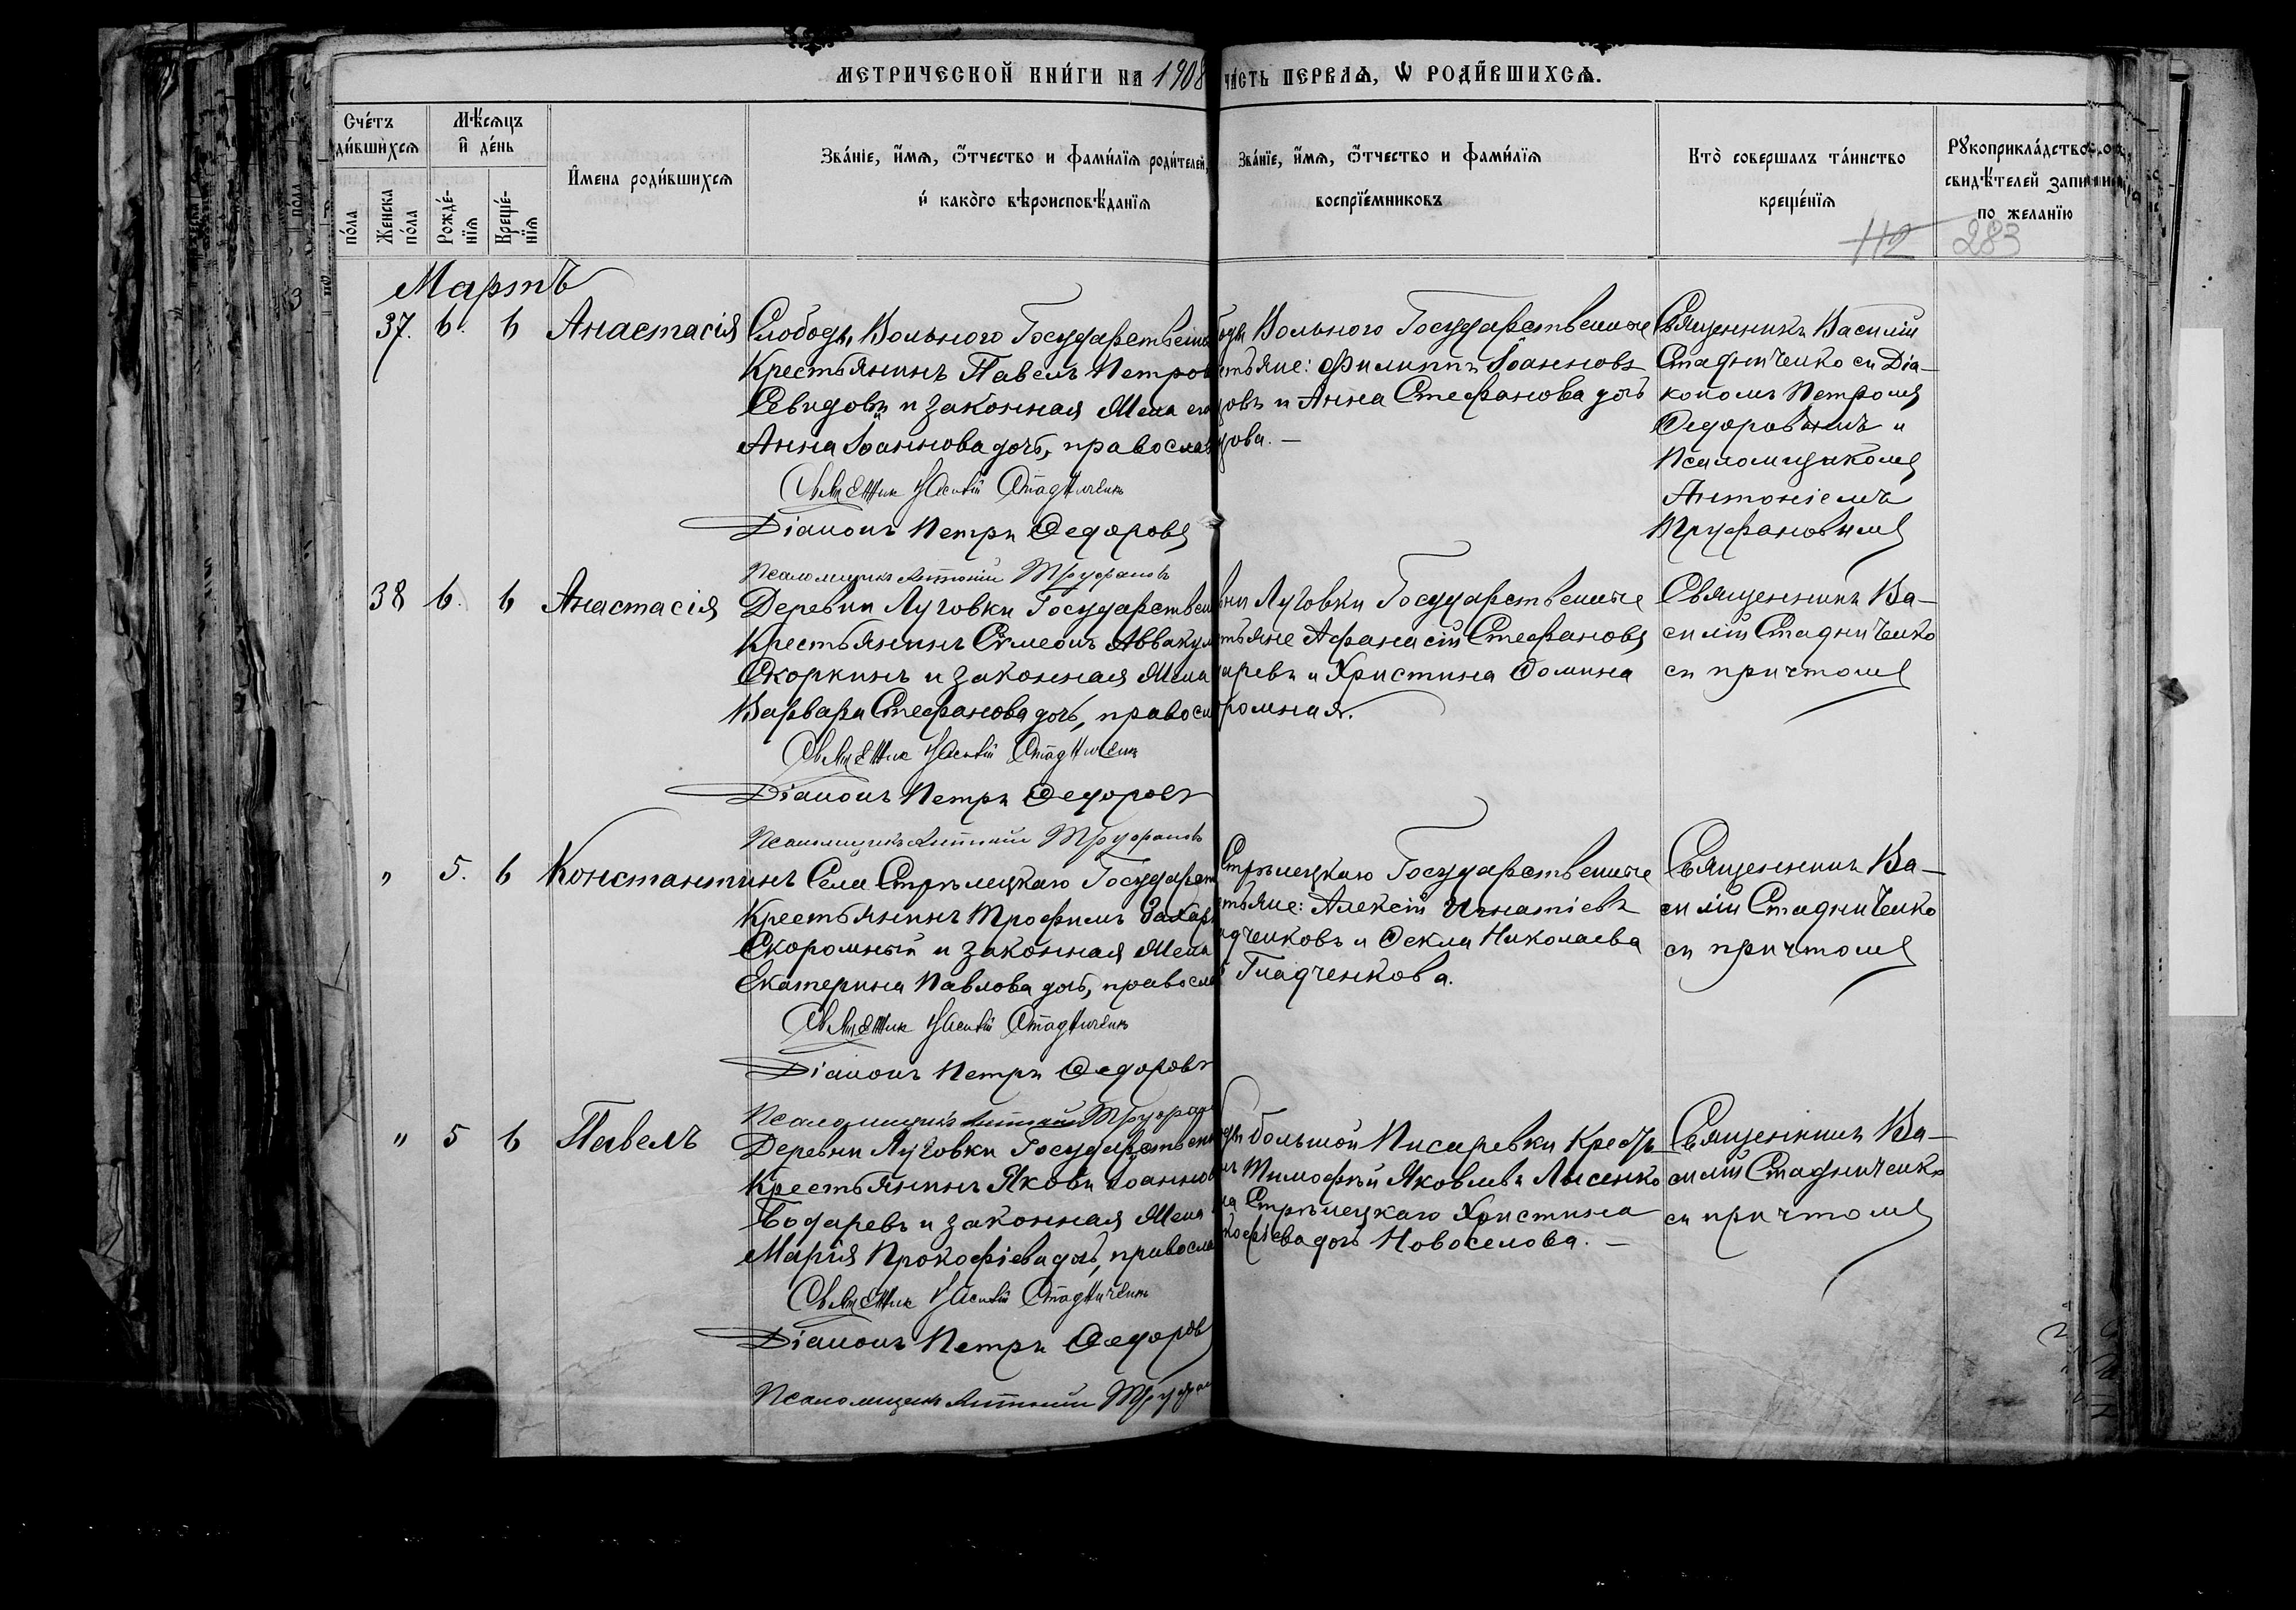 МЕТРИЧЕСКОЙ КНИ́ГИ НА 1908 ЧА́СТЬ ПЕРВАѦ, Ѡ РОДИ́ВШИХСѦ.
Сче́тъ ди́вшихсѧ
Мѣ́сѧцъ и де́нь
И́мена роди́вшихсѧ
Зва́нїе, и́мѧ, ѻ́тчество и фами́лїѧ роди́телей,
и како́го вѣроисповѣ́данїѧ
Зва́нїе, и́мѧ, ѻ́тчество и фами́лїѧ
воспрїе́мниковъ
Кто̀ совершалъ та́инство
креще́нїѧ
Рꙋкоприкла́дство
свидѣ́телей запи
по желанїю
по́ла
Женска по́ла
Рожде́-нїѧ
Креще́-нїѧ
112 283
Мартъ
37. 6. 6 Анастасія
Слободы Вольного Государствен
Крестьянинъ Павелъ Петров
Севидовъ и законная Жена его
Анна Іоаннова дочь, православ
Священник Василій Стадниченко
Діаконъ Петръ Ѳедоровъ
Псаломщикъ Антоній Труфановъ
ды Вольного Государственные
стьяне: Филиппъ Іоанновъ
довъ и Анна Стефанова дочь
дова. —
Священникъ Василій
Стадниченко съ Діа-
кономъ Петромъ
Ѳедоровымъ и
Псаломщикомъ
Антоніемъ
Труфановымъ
38 6. 6 Анастасія
Деревни Луговки Государствен
Крестьянинъ Сѵмеонъ Аввакум
Скоркинъ и законная Жена
Варвара Стефанова дочь, правосл
Священник Василій Стадниченко
Діаконъ Петръ Ѳедоровъ
Псаломщикъ Антоній Труфановъ
вни Луговки Государственные
тьяне Афанасій Стефановъ
даревъ и Христина Фомина
ромная.
Священникъ Ва-
силій Стадниченко
съ причтомъ
" 5. 6 Константинъ
Села Стрѣлецкаго Государст
Крестьянинъ Трофимъ Захар
Скоромный и законная Жена
Екатерина Павлова дочь, правосла
Священник Василій Стадниченко
Діаконъ Петръ Ѳедоровъ
Псаломщикъ Антоній Труфан
Стрѣлецкаго Государственные
стьяне: Алексій Игнатіевъ
адченковъ и Ѳекла Николаева
Гладченкова.
Священникъ Ва-
силій Стадниченко
съ причтомъ
" 5 6 Павелъ
Деревни Луговки Государствен
Крестьянинъ Яковъ Іоаннов
Бодаревъ и законная Жена
Марія Прокофіева дочь, правосла
Священник Василій Стадниченко
Діаконъ Петръ Ѳедоров
Псаломщикъ Антоній Труфан
ды Большой Писаревки Крестья
нъ Тимофѣй Яковлевъ Лысенко
ла Стрѣлецкаго Христина
кофіева дочь Новоселова. —
Священникъ Ва-
силій Стадниченко
съ причтомъ